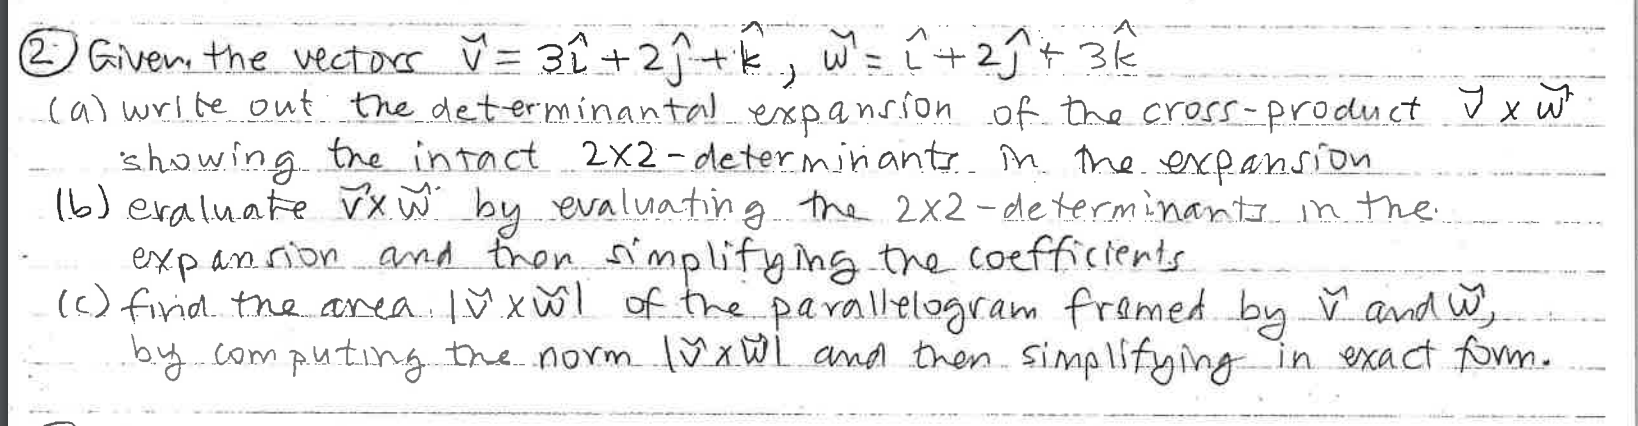 ② Given the vectors v⃗ = 3î + 2ĵ + k̂, w⃗ = î + 2ĵ + 3k̂
(a) write out the determinantal expansion of the cross-product v⃗ x w⃗
showing the intact 2x2-determinants in the expansion
(b) evaluate v⃗ x w⃗ by evaluating the 2x2-determinants in the
expansion and then simplifying the coefficients
(c) find the area |v⃗ x w⃗| of the parallelogram framed by v⃗ and w⃗,
by computing the norm |v⃗ x w⃗| and then simplifying in exact form.